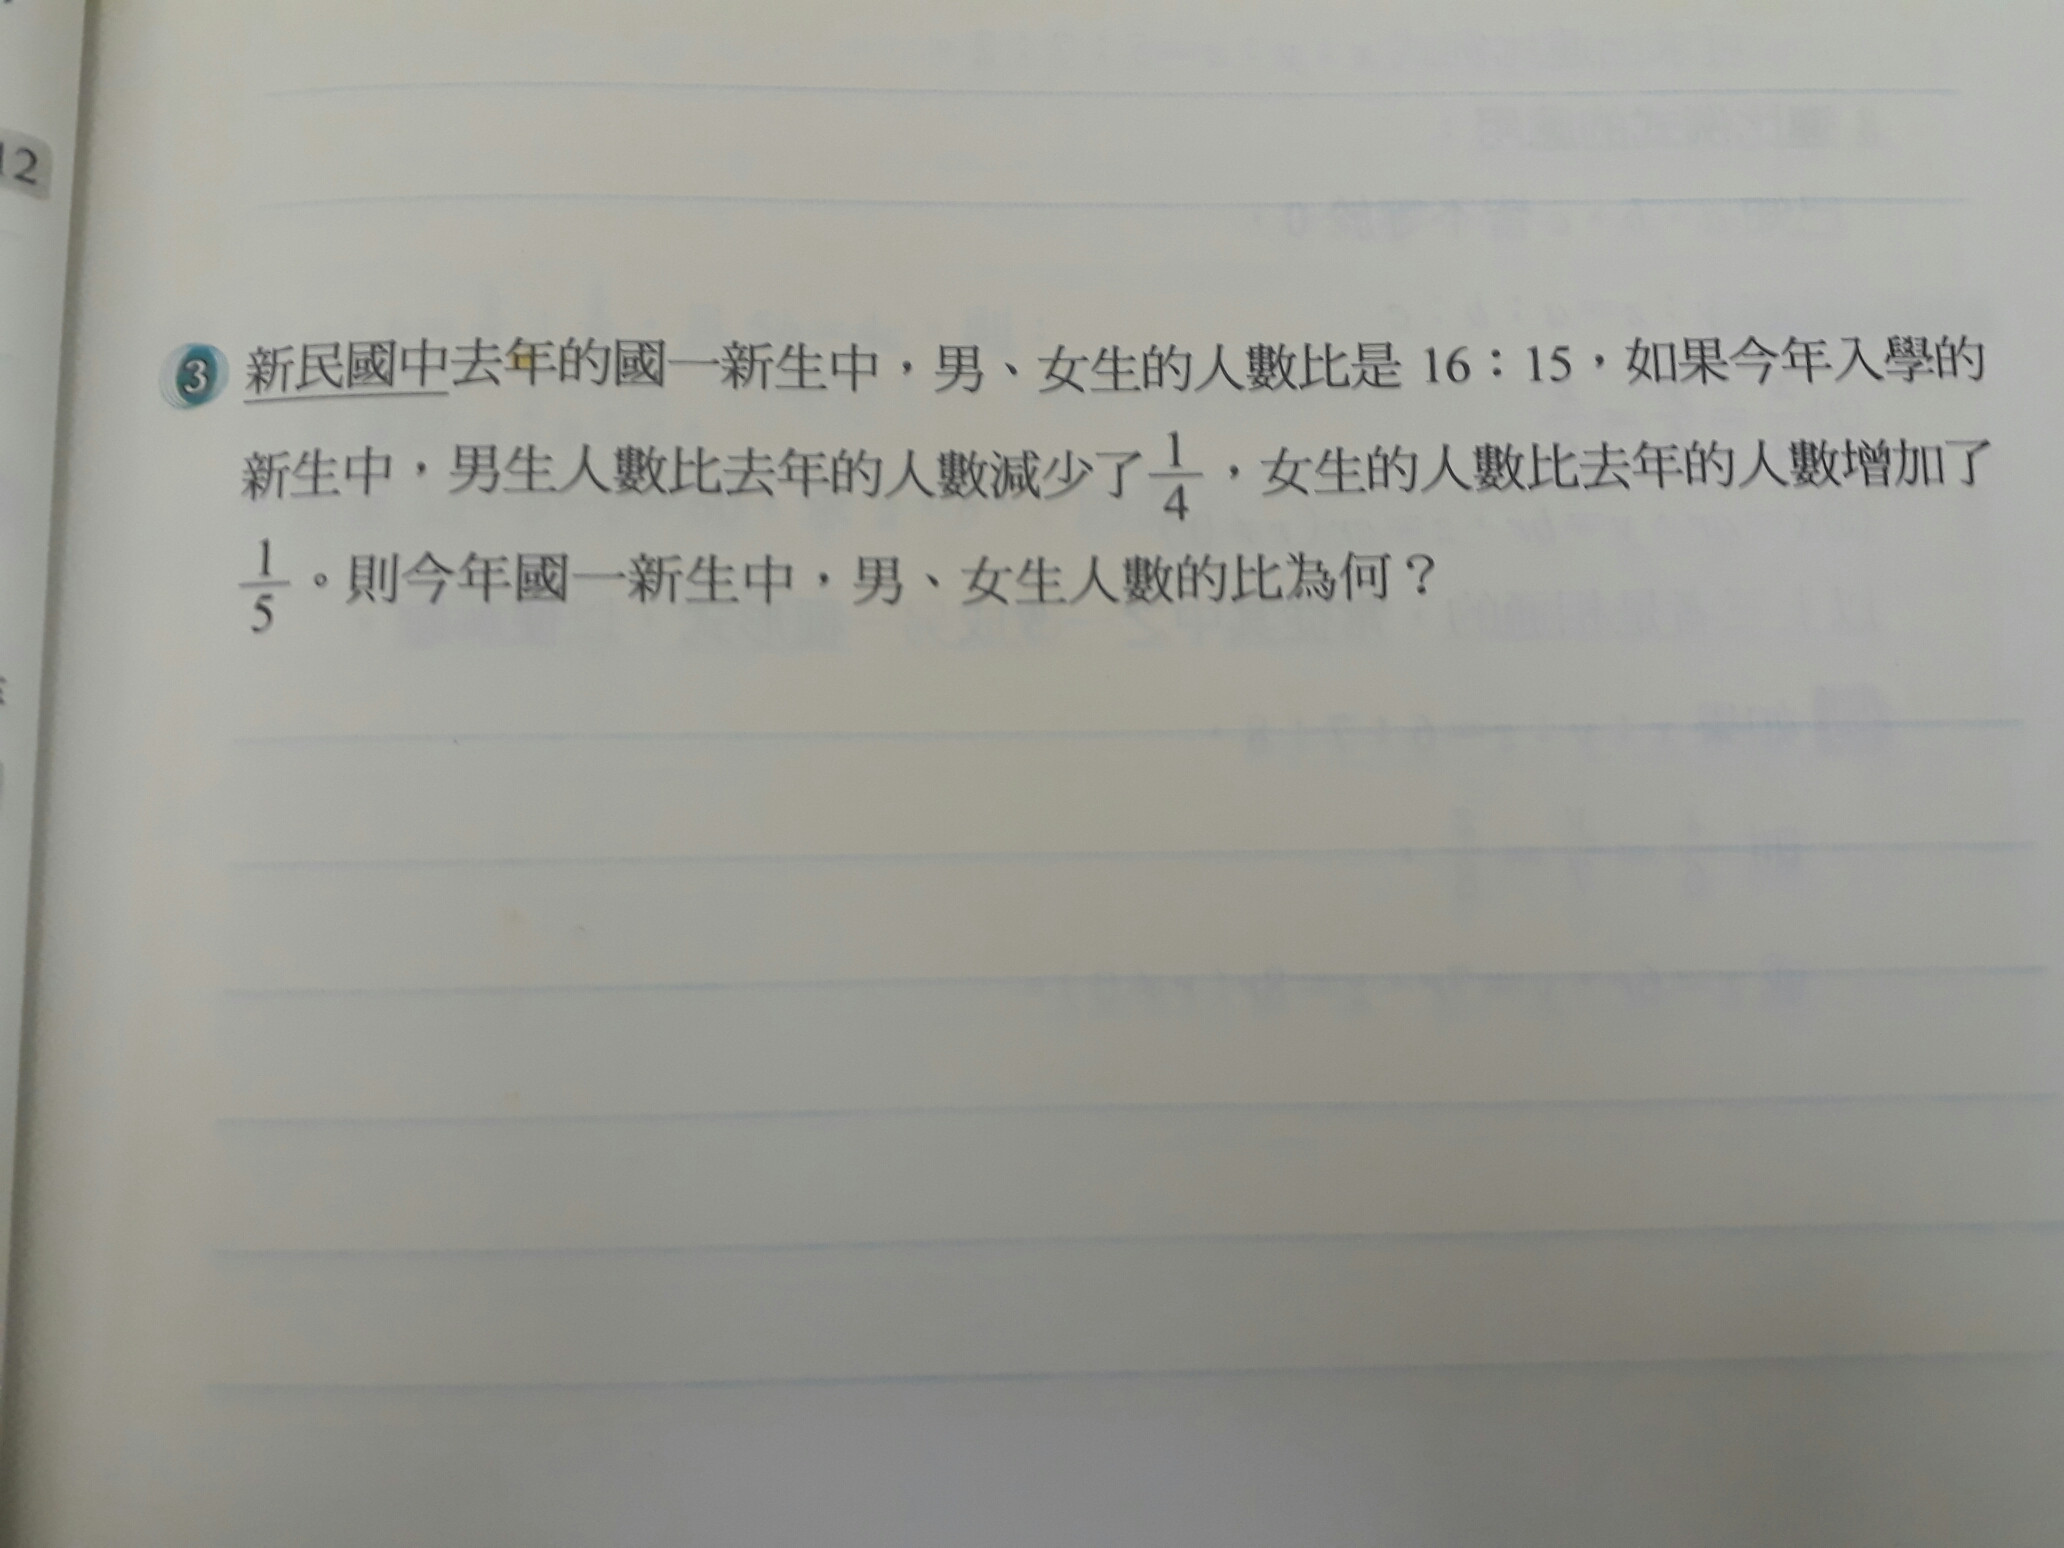 12
3 新民國中去年的國一新生中，男、女生的人數比是 16：15，如果今年入學的
新生中，男生人數比去年的人數減少了 1/4，女生的人數比去年的人數增加了
1/5。則今年國一新生中，男、女生人數的比為何？